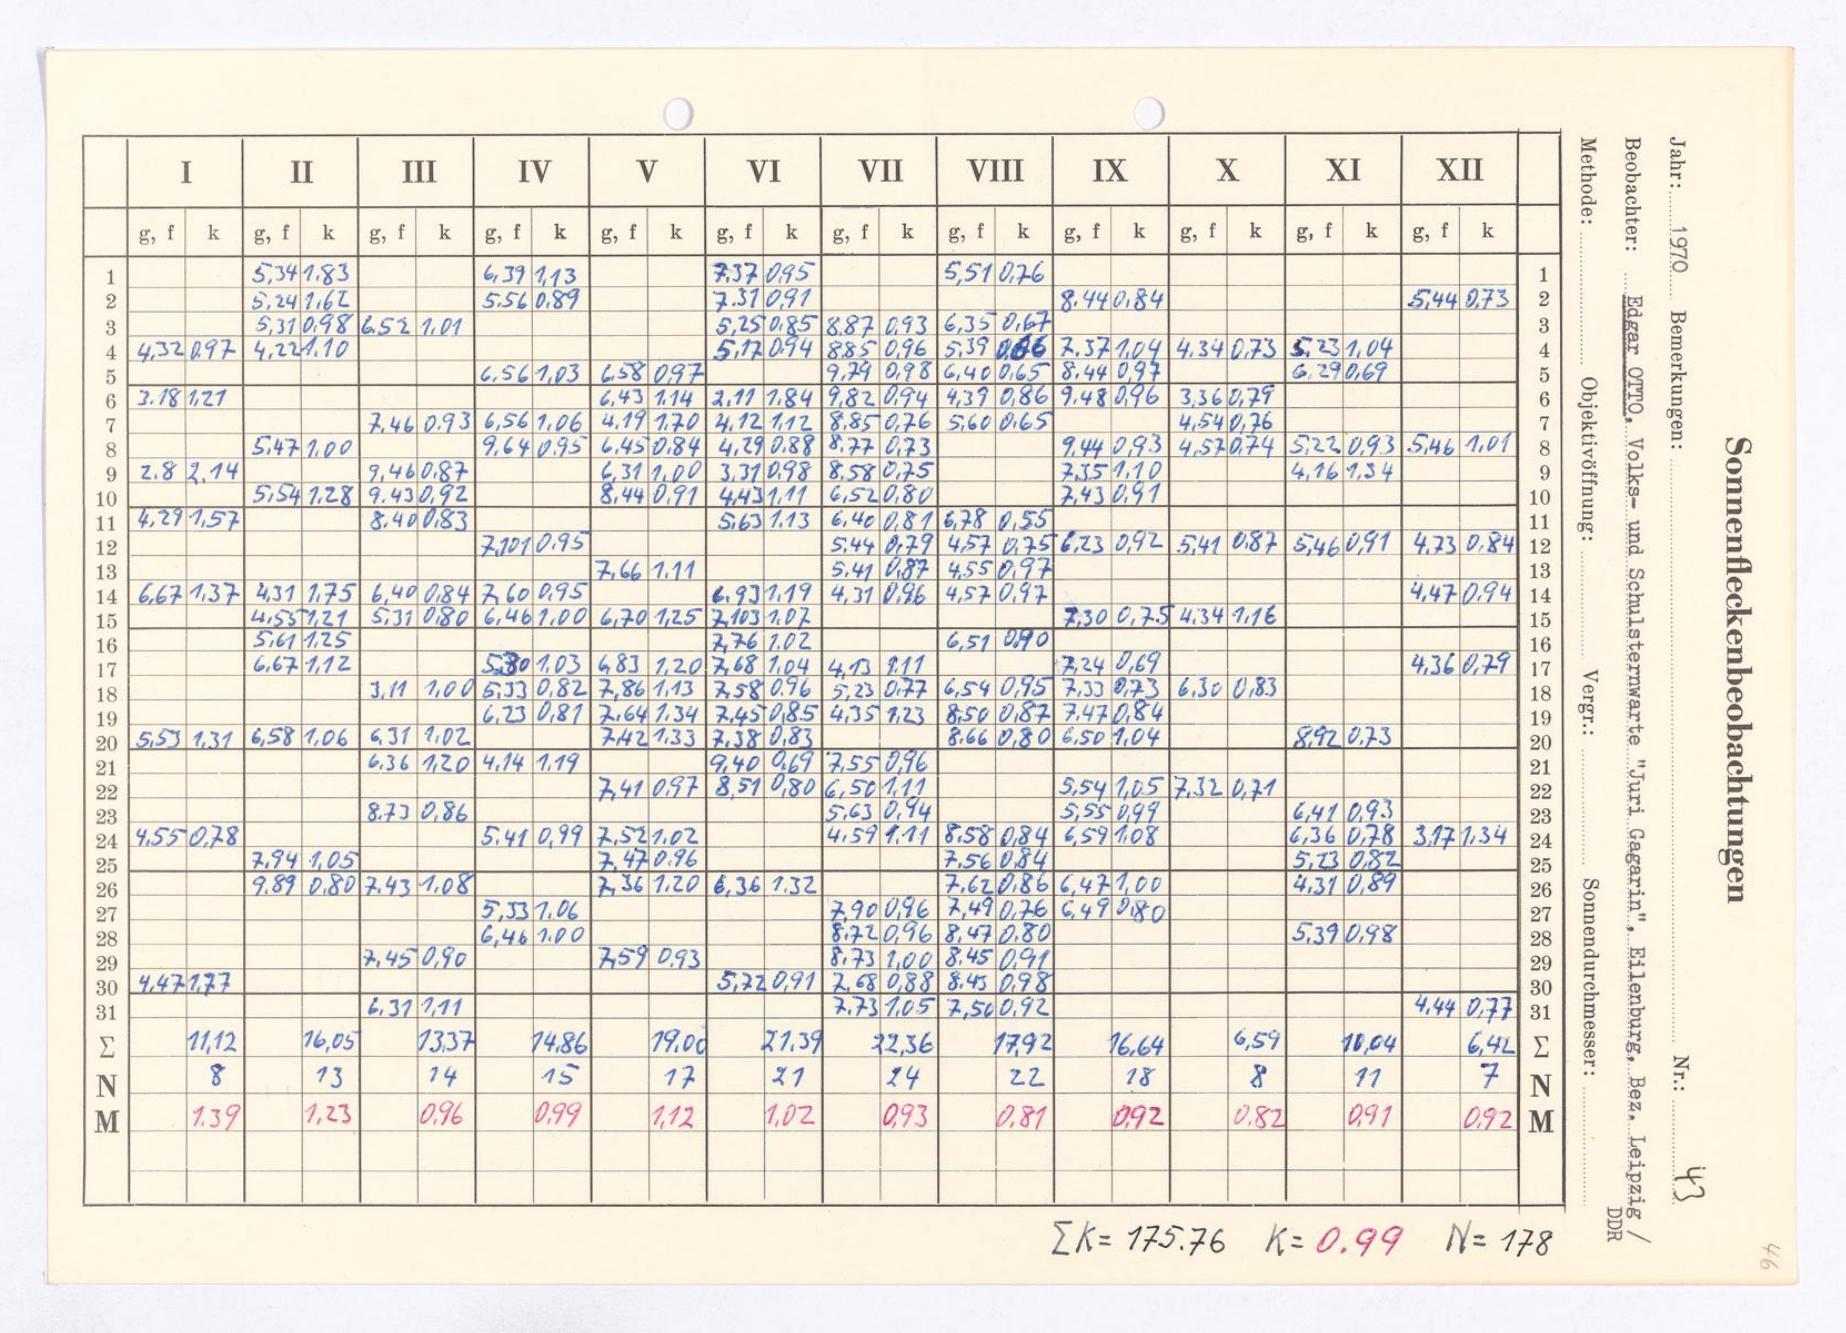 Sonnenfleckenbeobachtungen
Jahr: 1970 Bemerkungen: Nr.: 43
Beobachter: Edgar OTTO, Volks- und Schulsternwarte "Juri Gagarin", Eilenburg, Bez. Leipzig / DDR
Methode: Objektivöffnung: Vergr.: Sonnendurchmesser:
I II III IV V VI VII VIII IX X XI XII
g, f k g, f k g, f k g, f k g, f k g, f k g, f k g, f k g, f k g, f k g, f k g, f k
1 5,34 1.83 6,39 1,13 7.37 0,95 5,51 0,76 1
2 5,24 1.62 5.56 0,89 7.31 0,91 8.44 0,84 5,44 0,73 2
3 5,31 0,98 6.52 1.01 5,25 0.85 8,87 0,93 6,35 0,67 3
4 4,32 0.97 4,22 1.10 5,17 0.94 8.85 0,96 5,39 0,66 7.37 1,04 4.34 0,73 5.23 1,04 4
5 6,56 1,03 6.58 0,97 9,79 0,98 6,40 0,65 8.44 0,97 6,29 0,69 5
6 3.18 1,21 6,43 1.14 2,11 1,84 9,82 0,94 4,39 0,86 9,48 0,96 3,36 0,79 6
7 7,46 0.93 6,56 1.06 4.19 1.70 4,12 1,12 8.85 0,76 5,60 0,65 4,54 0,76 7
8 5,47 1,00 9,64 0,95 6,45 0,84 4,29 0.88 8,77 0,73 9,44 0,93 4,57 0,74 5,22 0,93 5,46 1,01 8
9 2.8 2,14 9,46 0,87 6,31 1,00 3,31 0,98 8,58 0,75 7,35 1,10 4,16 1.34 9
10 5,54 1.28 9.43 0,92 8,44 0,91 4,43 1,11 6,52 0,80 7,43 0,91 10
11 4,29 1,57 8.40 0,83 5,63 1.13 6,40 0,81 6,78 0,55 11
12 7,101 0.95 5,44 0,79 4,57 0,75 6,23 0,92 5,41 0,87 5,46 0,91 4,73 0,84 12
13 7,66 1.11 5,41 0,87 4,55 0,97 13
14 6,67 1,37 4,31 1,75 6,40 0,84 7,60 0,95 6,93 1,19 4,31 0,96 4,57 0,97 4,47 0,94 14
15 4,55 1,21 5,31 0,80 6,46 1.00 6,70 1,25 7,103 1.07 7,30 0,75 4,34 1,16 15
16 5,61 1.25 7,76 1.02 6,51 0,90 16
17 6,67 1,12 5,30 1,03 6,83 1,20 7,68 1,04 4,13 1.11 7,24 0,69 4,36 0,79 17
18 3,11 1,00 5,33 0,82 7,86 1,13 7,58 0.96 5,23 0,77 6,54 0,95 7,33 0,73 6,30 0,83 18
19 6,23 0,81 7,64 1.34 7,45 0,85 4,35 1,23 8,50 0,87 7.47 0,84 19
20 5,53 1,31 6,58 1,06 6,31 1.02 7,42 1.33 7,38 0,83 8.66 0,80 6,50 1,04 8,92 0,73 20
21 6,36 1,20 4,14 1.19 9,40 0,69 7,55 0,96 21
22 7,41 0,97 8,51 0,80 6,50 1,11 5,54 1,05 7,32 0,71 22
23 8.73 0,86 5,63 0,94 5,55 0,99 6,41 0,93 23
24 4,55 0,78 5.41 0,99 7,52 1.02 4.59 1.11 8.58 0,84 6,59 1.08 6,36 0,78 3,17 1.34 24
25 7,94 1,05 7,47 0.96 7,56 0,84 5,23 0,82 25
26 9.89 0,80 7.43 1.08 7,36 1.20 6,36 1.32 7,62 0,86 6,47 1,00 4,31 0,89 26
27 5,33 1.06 7,90 0,96 7,49 0,76 6,49 0,80 27
28 6,46 1.00 8.72 0,96 8,47 0.80 5,39 0,98 28
29 7,45 0,90 7,59 0.93 8.73 1,00 8.45 0,91 29
30 4,47 1,77 5,72 0,91 7,68 0,88 8.43 0,98 30
31 6,31 1,11 7,73 1.05 7,50 0,92 4,44 0,77 31
Σ 11,12 16,05 13,37 14,86 19.00 21.39 22,36 17,92 16,64 6,59 10,04 6,42 Σ
N 8 13 14 15 17 21 24 22 18 8 11 7 N
M 1.39 1,23 0,96 0,99 1,12 1,02 0,93 0,81 0,92 0.82 0,91 0,92 M
ΣK = 175.76 K = 0.99 N = 178
46